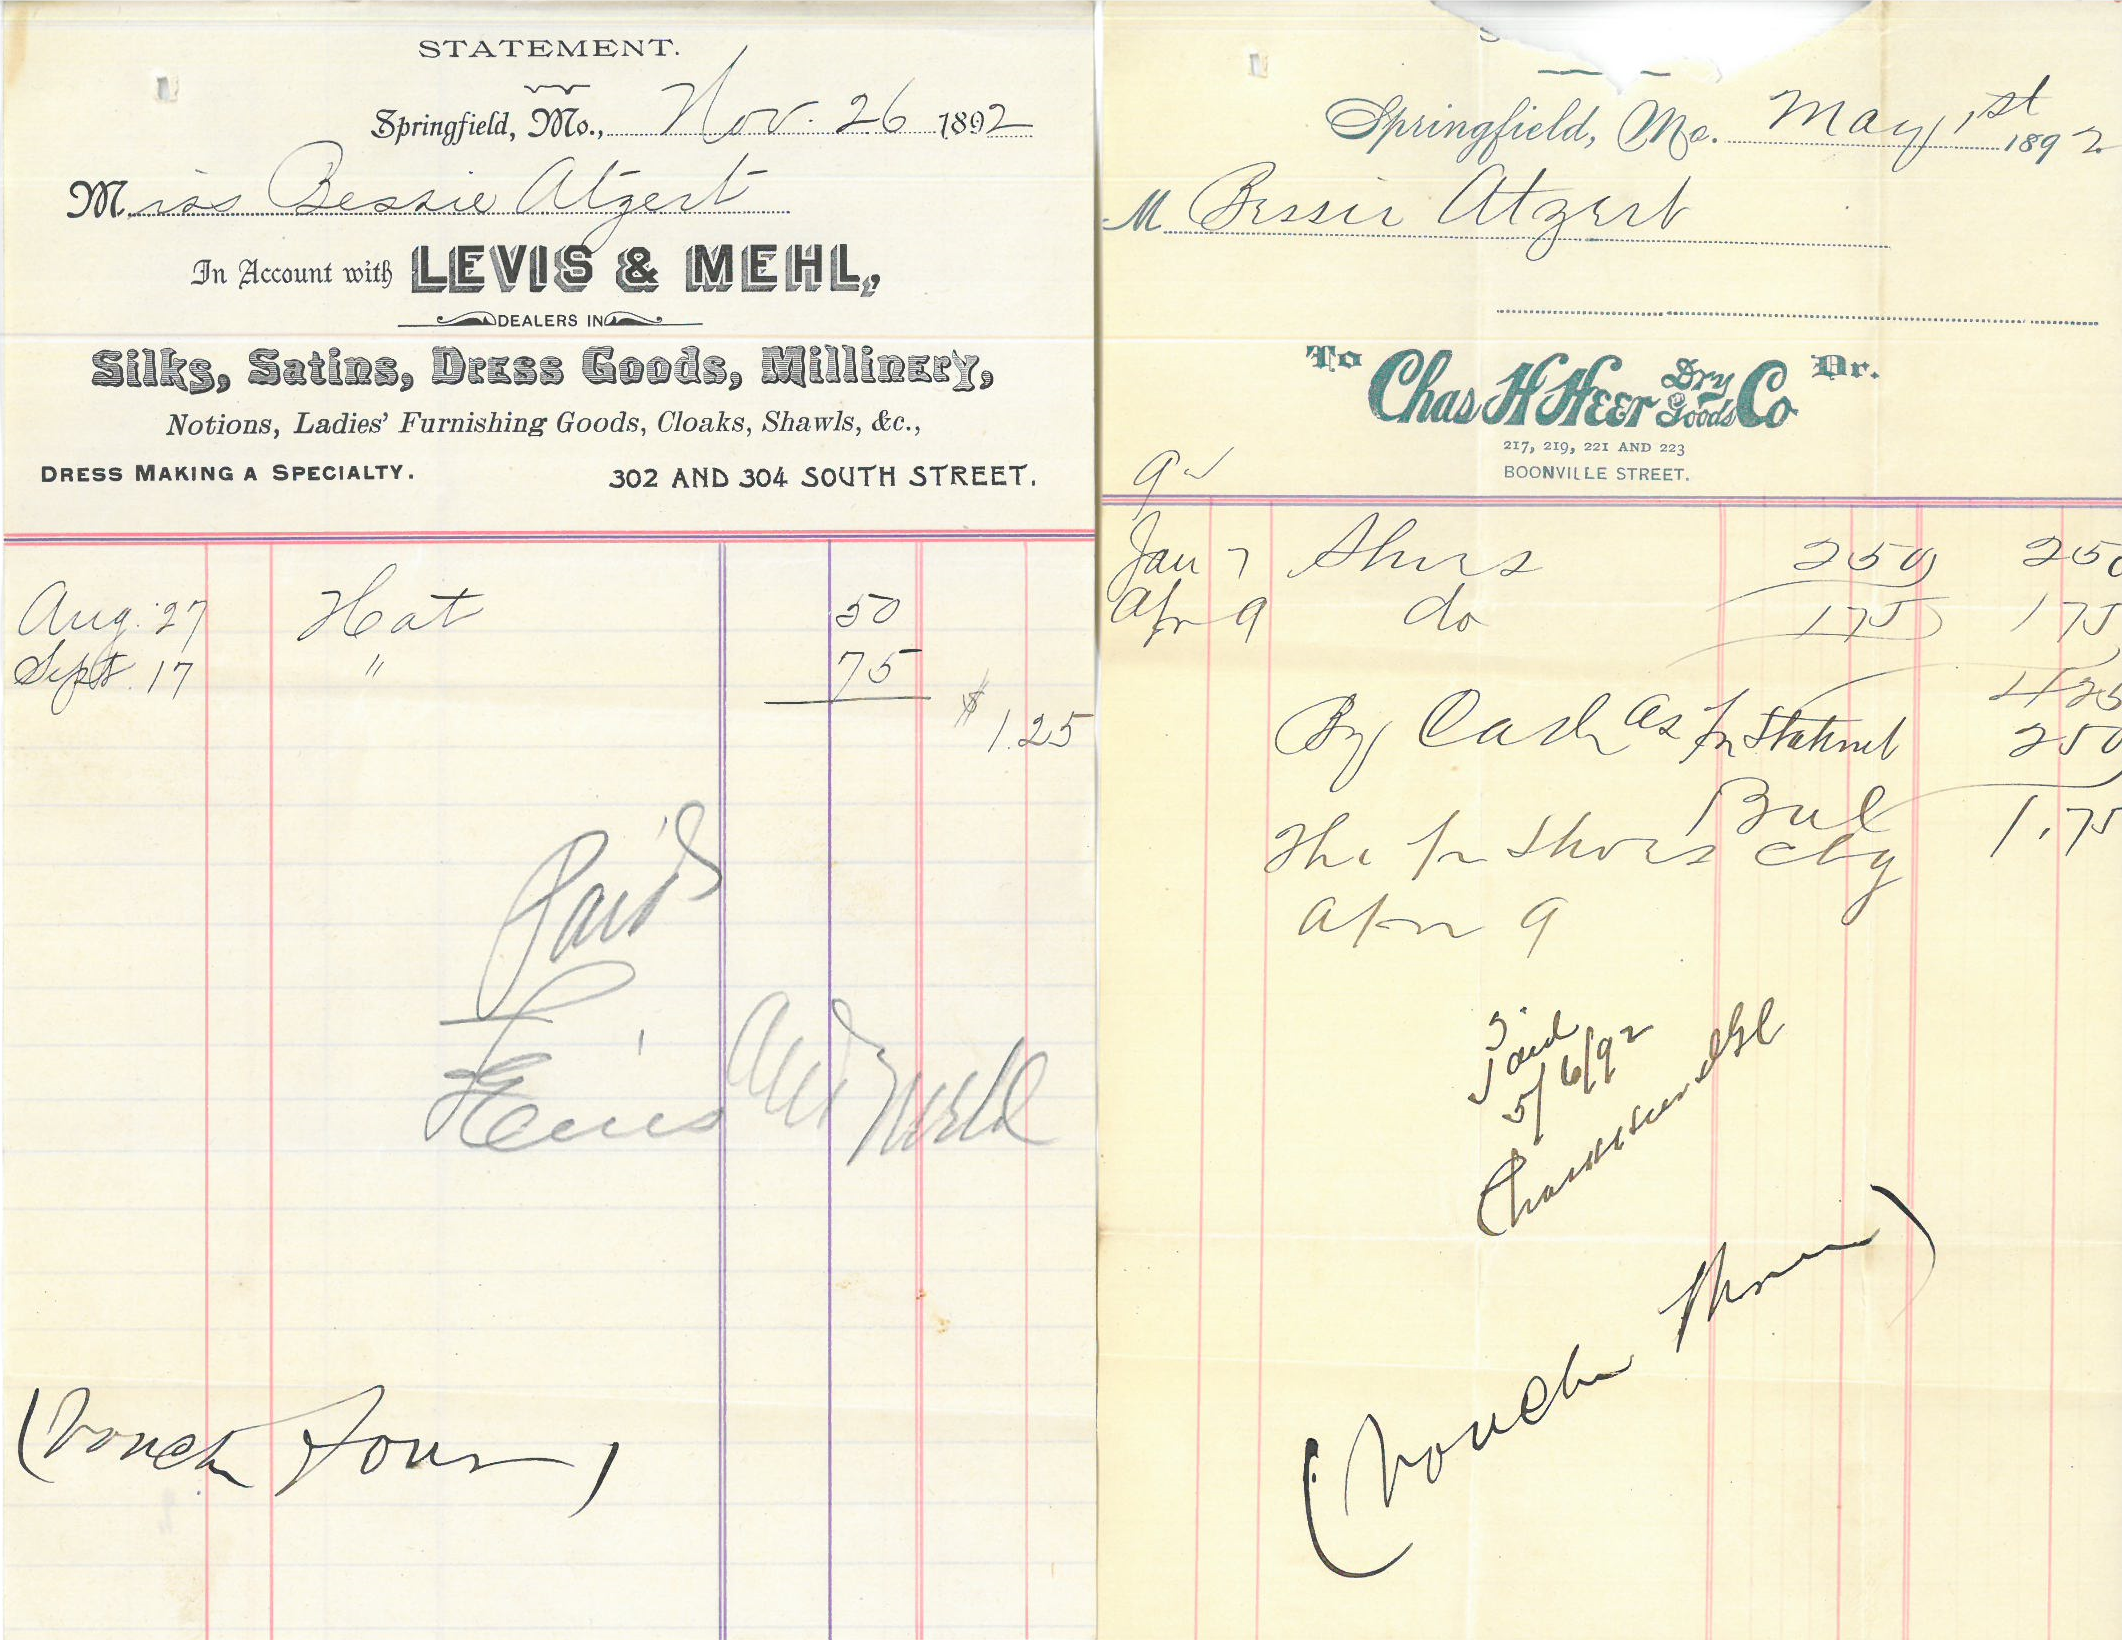 STATEMENT.
Springfield, Mo., Nov. 26 1892
Miss Bessie Atzert
In Account with LEVIS & MEHL,
DEALERS IN
Silks, Satins, Dress Goods, Millinery,
Notions, Ladies' Furnishing Goods, Cloaks, Shawls, &c.,
DRESS MAKING A SPECIALTY. 302 AND 304 SOUTH STREET.
Aug. 27 Hat 50
Sept. 17 " 75
$ 1.25
Paid
Levis and Mehl
(Vouch Four)
Springfield, Mo. May 1st 1892
M Bessie Atzert
To Chas H Heer Dry Goods Co Dr.
217, 219, 221 AND 223
BOONVILLE STREET.
92
Jan 7 Shoes 250 250
Apr 9 do 175 175
425
By Cash as pr Statmet 250
Bal 1.75
The pr Shoes chg
Apr 9
Paid
5/6/92
(Vouch Three)